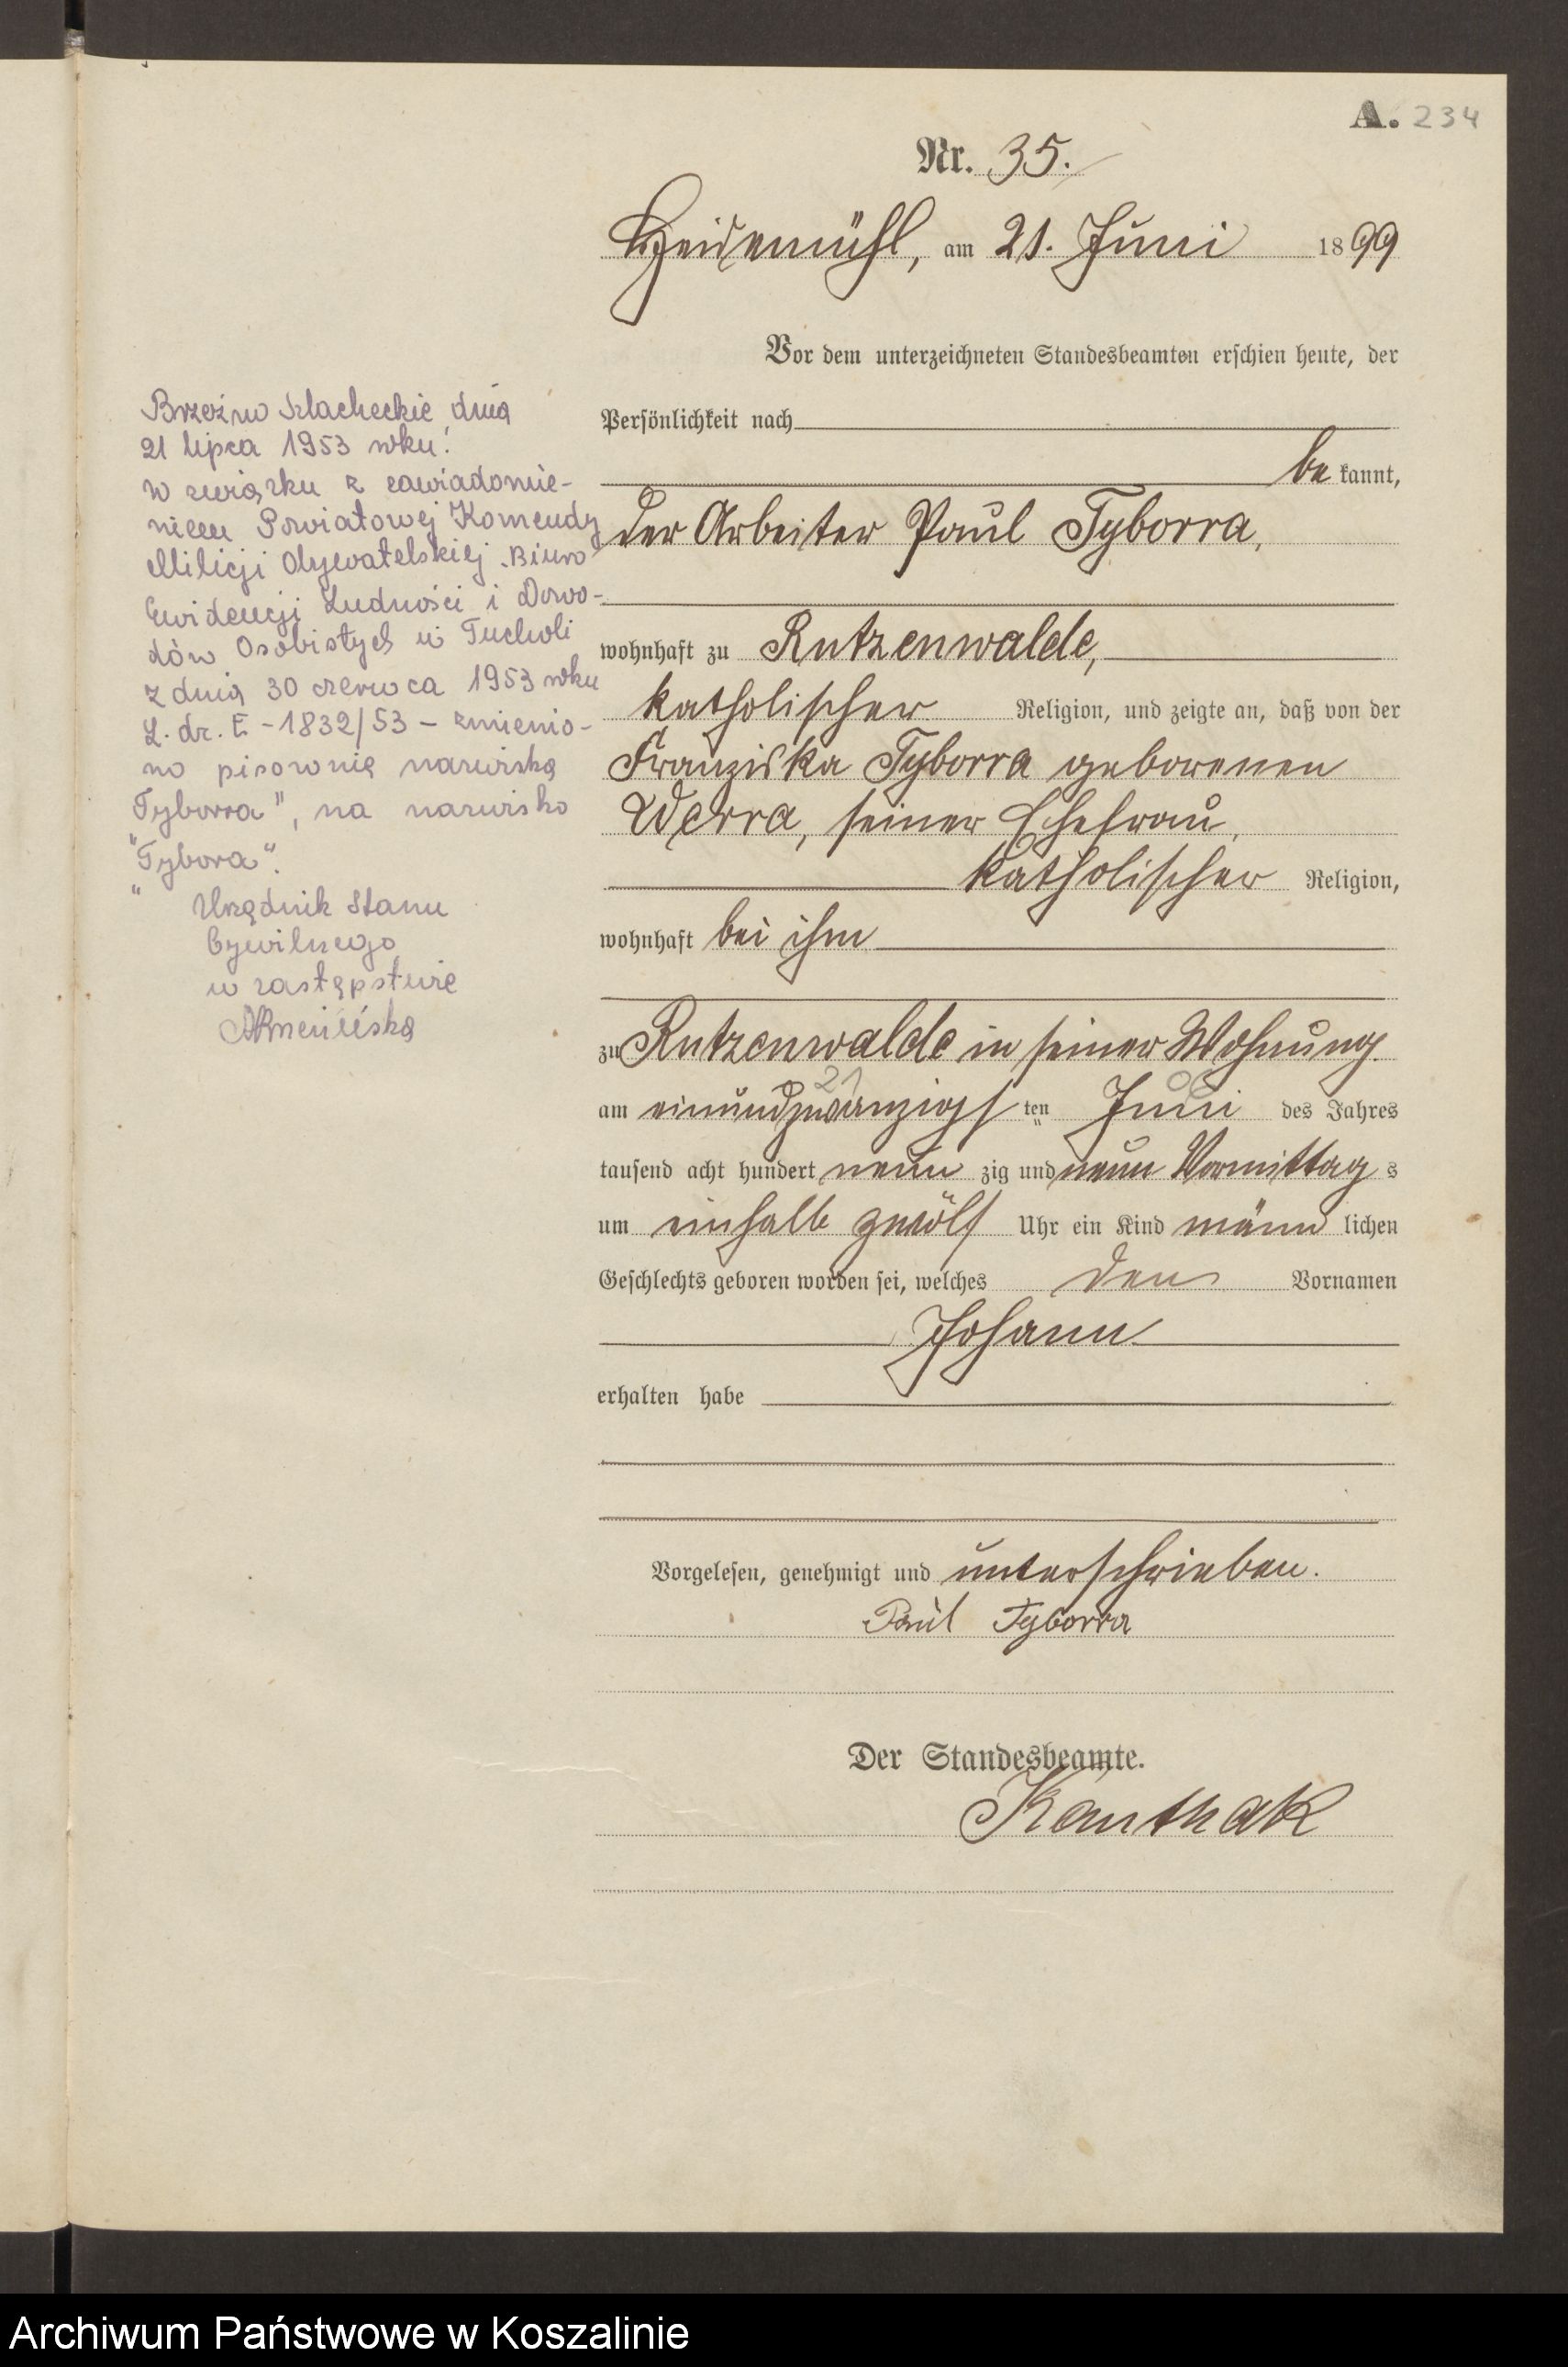 A. 234
Nr. 35.
Heidemühl, am 21. Juni 1899
Vor dem unterzeichneten Standesbeamten erschien heute, der
Persönlichkeit nach
be kannt,
der Arbeiter Paul Tyborra,
wohnhaft zu Rutzenwalde,
katholischer Religion, und zeigte an, daß von der
Franziska Tyborra geborenen
Werra, seiner Ehefrau,
katholischer Religion,
wohnhaft bei ihm
zu Rutzenwalde in seiner Wohnung
21 06
am einundzwanzigs ten Juni des Jahres
tausend acht hundert neun zig und neun Vormittag s
um einhalb zwölf Uhr ein Kind männ lichen
Geschlechts geboren worden sei, welches den Vornamen
Johann
erhalten habe
Vorgelesen, genehmigt und unterschrieben.
Paul Tyborra
Der Standesbeamte.
Kanthak
Brzeźno Szlacheckie, dnia
21 lipca 1953 roku.
W związku z zawiadomie-
niem Powiatowej Komendy
Milicji Obywatelskiej. Biuro
Ewidencji Ludności i Dowo-
dów Osobistych w Tucholi
z dnia 30 czerwca 1953 roku
L. dz. E - 1832/53 - zmienio-
no pisownię nazwiska
"Tyborra", na nazwisko
"Tybora".
Urzędnik Stanu
Cywilnego
w zastępstwie
Archiwum Państwowe w Koszalinie